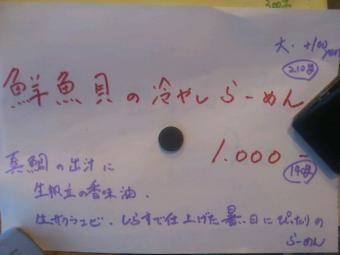 大・+100yen
210g
鮮魚貝の冷やしらーめん
1.000-
真鯛の出汁に
生帆立の香味油、
生サクラエビ、しらすで仕上げた暑い日にぴったりの
らーめん